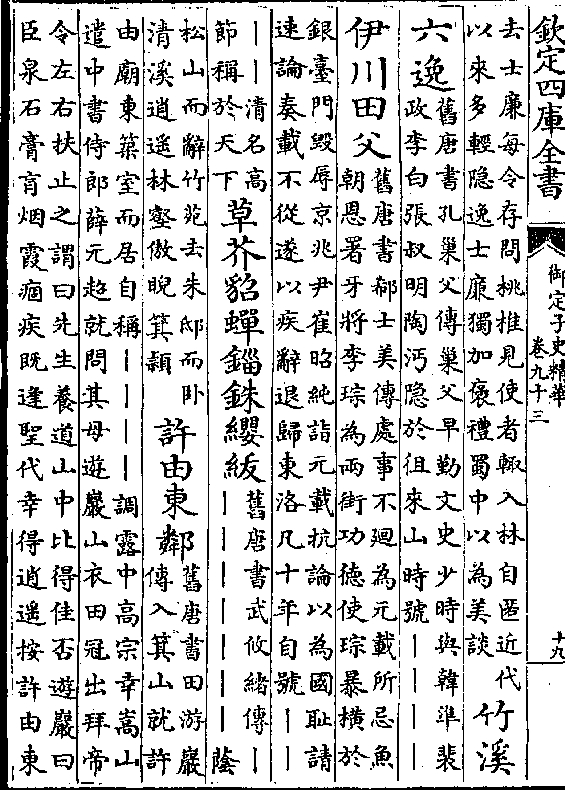 欽定四庫全書
御定子史精華
卷九十三
十九
去士廉每令存問桃椎見使者輒入林自匿近代
以來多輕隐逸士廉獨加褒禮蜀中以為美談
竹溪
六逸
舊唐書孔巢父傳巢父早勤文史少時與韓準裴
政李白張叔明陶沔隐於徂來山時號丨丨丨丨
伊川田父
舊唐書郗士美傳處事不廻為元載所忌魚
朝恩署牙將李琮為兩街功德使琮暴橫於
銀臺門毁辱京兆尹崔昭純詣元載抗論以為國恥請
速論奏載不從遂以疾辭退歸東洛凡十年自號丨丨
丨丨清名高
節稱於天下
草芥貂蟬錙銖纓紱
舊唐書武攸緒傳丨
丨丨丨丨丨丨丨蔭
松山而辭竹苑去朱邸而卧
清溪逍遥林壑傲睨箕潁
許由東鄰
舊唐書田游巖
傳入箕山就許
由廟東築室而居自稱丨丨丨丨調露中高宗幸嵩山
遣中書侍郎薛元超就問其母遊巖山衣田冠出拜帝
令左右扶止之謂曰先生養道山中比得佳否遊巖曰
臣泉石膏肓烟霞痼疾既逢聖代幸得逍遥按許由東